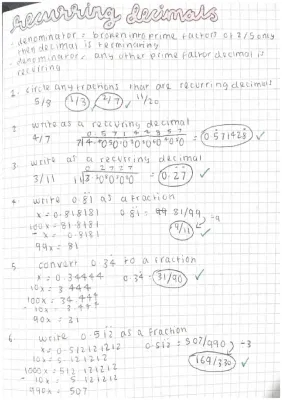 recurring decimals
· denominator = broken into prime factors of 2/5 only
then decimal is terminating
· denominator, any other prime factor decimal is
recurring
1. circle any fractions that are recurring decimals
5/8 1/3 4/7 11/20
2. write as a recurring decimal
4/7 = 0.571428 ✓
3 write as a recurring decimal
3/11 = 0.27 ✓
4 write 0.81 as a fraction
x = 0.818181 0.81 = 81/99 ÷9
100x = 81.8181 9/11 ✓
- x = 0.8181
99x = 81
5. convert 0.34 to a fraction
x = 0.34444 0.34 = 31/90 ✓
10x = 3.444
100x = 34.444
- 10x = 3.444
90x = 31
6. write 0.512 as a fraction
x = 0.512121212 0.512 = 507/990 ÷3
10x = 5.121212 169/330 ✓
1000x = 512.121212
- 10x = 5.121212
990x = 507